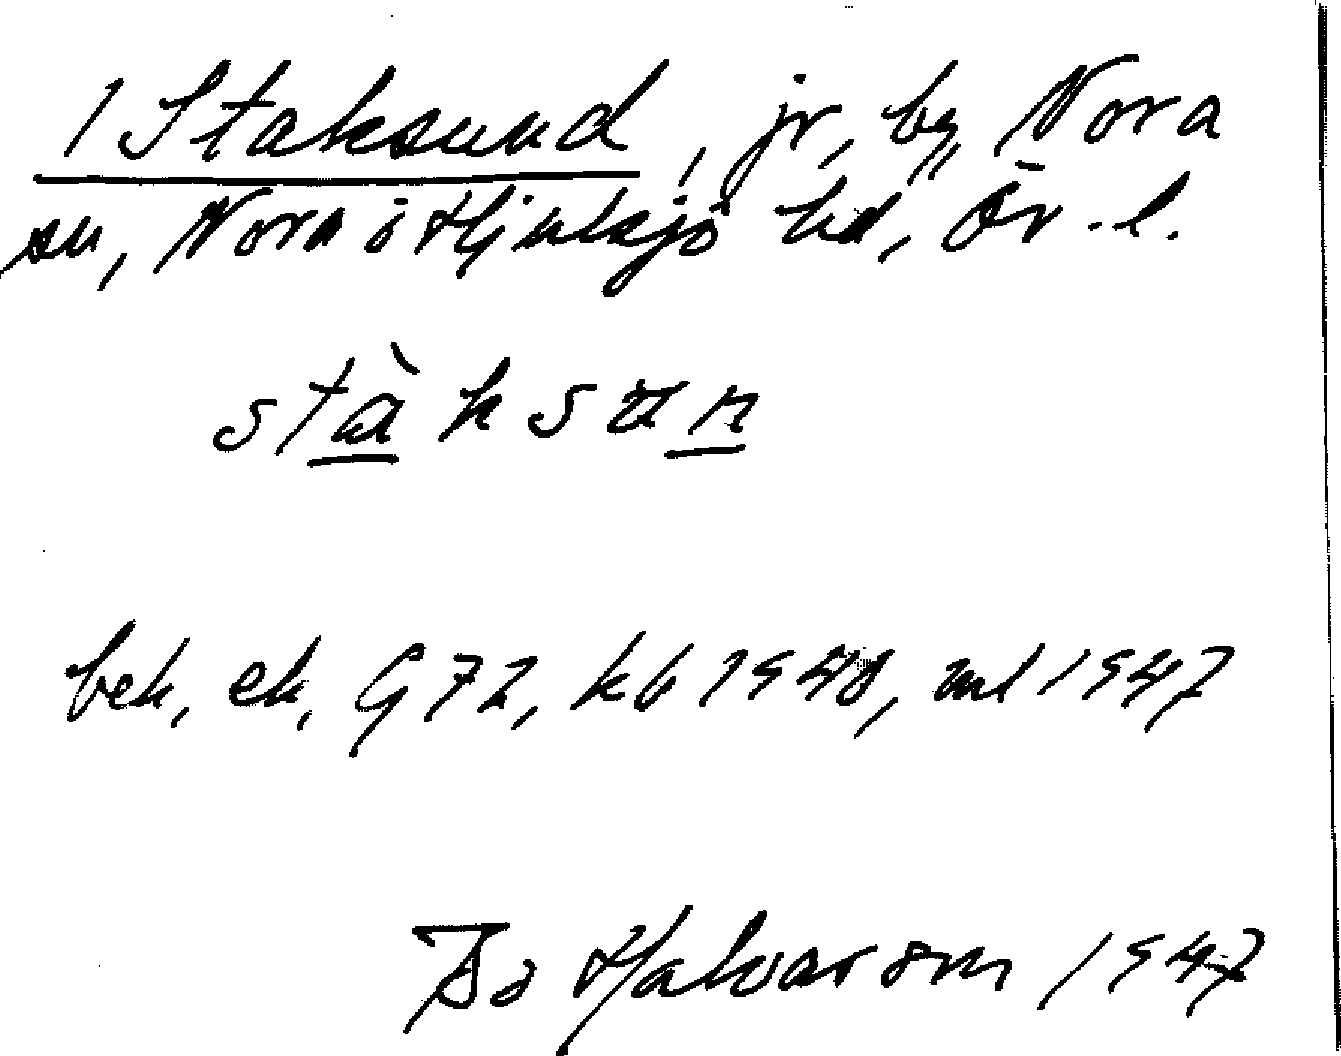 1 Staksund, jr, by, Nora
sn, Nora o Hjulsjö hd, Ör. l.
stàksun
bek, ek, G 72, kb 1940, ml 1947
Bo Halvarson 1947